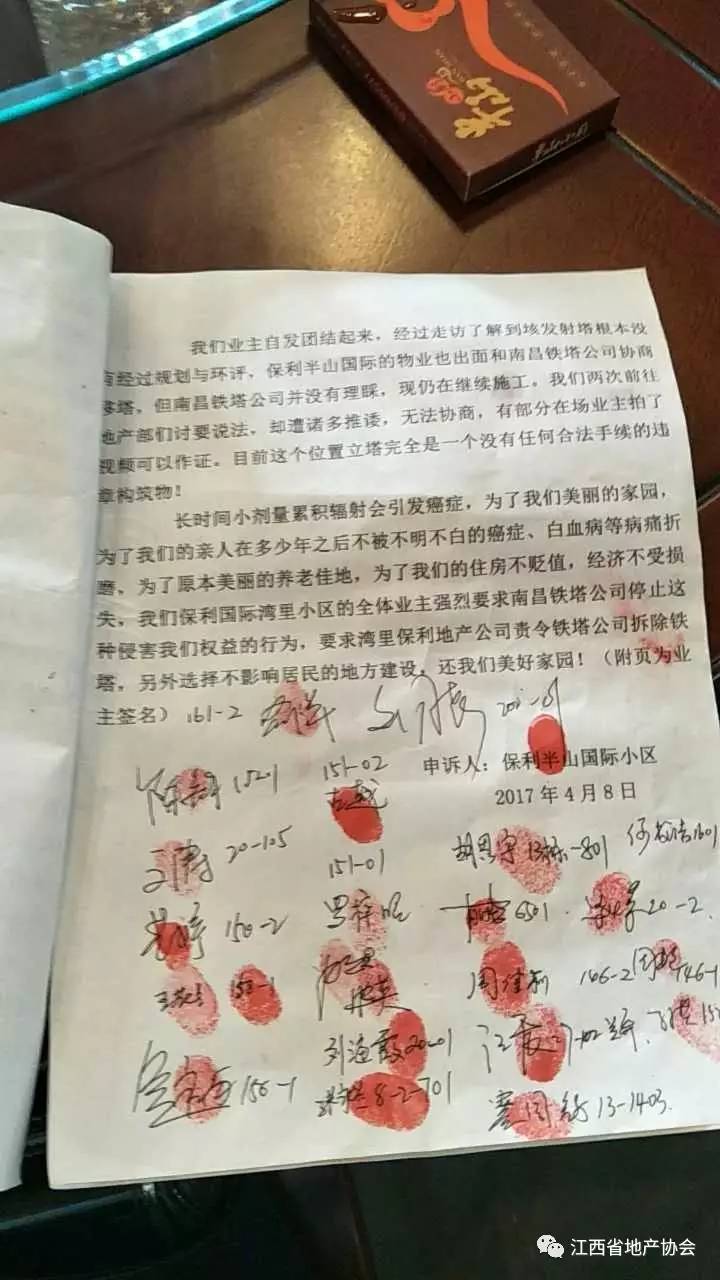 我们业主自发团结起来，经过走访了解到垓发射塔根本没
有经过规划与环评，保利半山国际的物业也出面和南昌铁塔公司协商
移塔，但南昌铁塔公司并没有理睬，现仍在继续施工。我们两次前往
地产部们讨要说法，却遭诸多推诿，无法协商，有部分在场业主拍了
视频可以作证。目前这个位置立塔完全是一个没有任何合法手续的违
章构筑物！
长时间小剂量累积辐射会引发癌症，为了我们美丽的家园，
为了我们的亲人在多少年之后不被不明不白的癌症、白血病等病痛折
磨，为了原本美丽的养老佳地，为了我们的住房不贬值，经济不受损
失，我们保利国际湾里小区的全体业主强烈要求南昌铁塔公司停止这
种侵害我们权益的行为，要求湾里保利地产公司责令铁塔公司拆除铁
塔，另外选择不影响居民的地方建设，还我们美好家园！（附页为业
主签名）161-2
申诉人：保利半山国际小区
2017年4月8日
1521 151-02
20-105 151-01
150-2 6501 20-2
周佳莉 166-2 146-1
刘海霞
156-1 8-2-701
13-1403
江西省地产协会